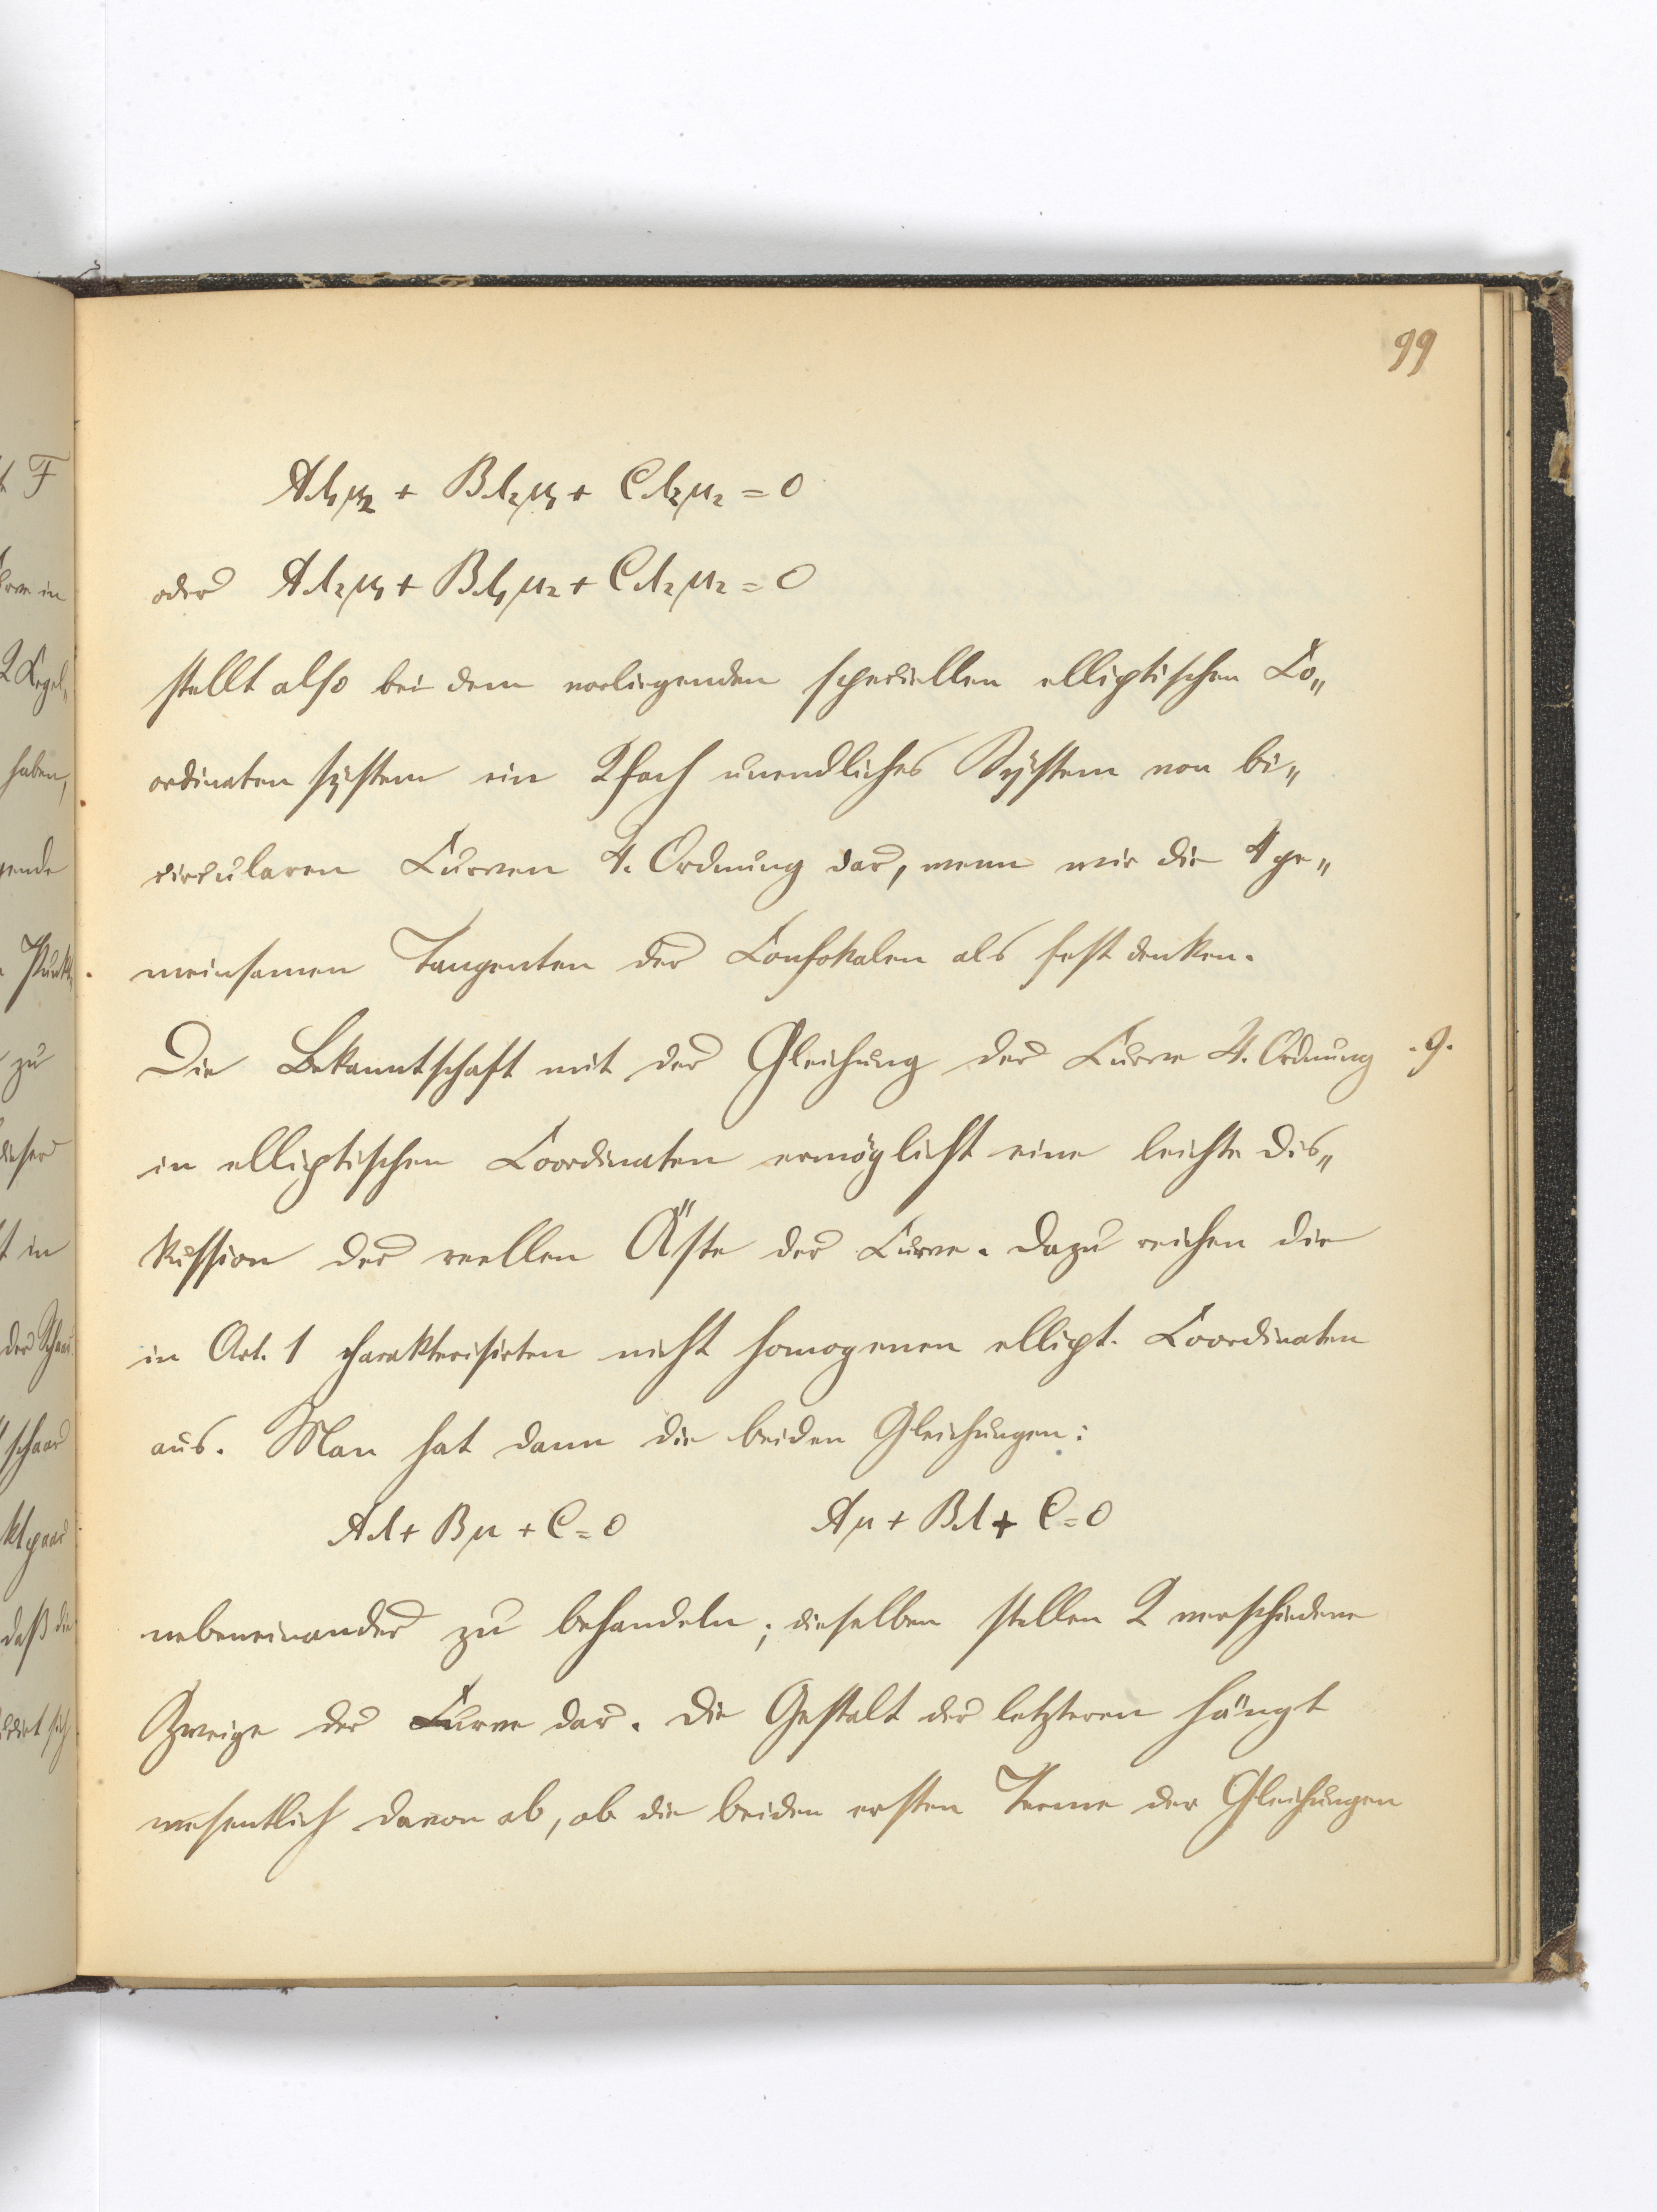 99
Aλ₁μ₂ + Bλ₂μ₁ + Cλ₂μ₂ = 0
oder Aλ₂μ₁ + Bλ₁μ₂ + Cλ₂μ₂ = 0
stellt also bei dem vorliegenden speciellen elliptischen Co„
ordinatensystem ein 2fach unendliches System von bi„
circularen Curven 4. Ordnung dar, wenn wir die 4 ge„
meinsamen Tangenten der Confokalen als fest denken.
Die Bekanntschaft mit der Gleichung der Curve 4. Ordnung .9.
in elliptischen Coordinaten ermöglicht eine leichte Dis„
kussion der reellen Äste der Curve. Dazu reichen die
in Art. 1 charakterisirten nicht homogenen ellipt. Coordinaten
aus. Man hat dann die beiden Gleichungen:
Aλ + Bμ + C = 0 Aμ + Bλ + C = 0
nebeneinander zu behandeln; dieselben stellen 2 verschiedene
Zweige der Curve dar. Die Gestalt der letzteren hängt
wesentlich davon ab, ob die beiden ersten Terme der Gleichungen